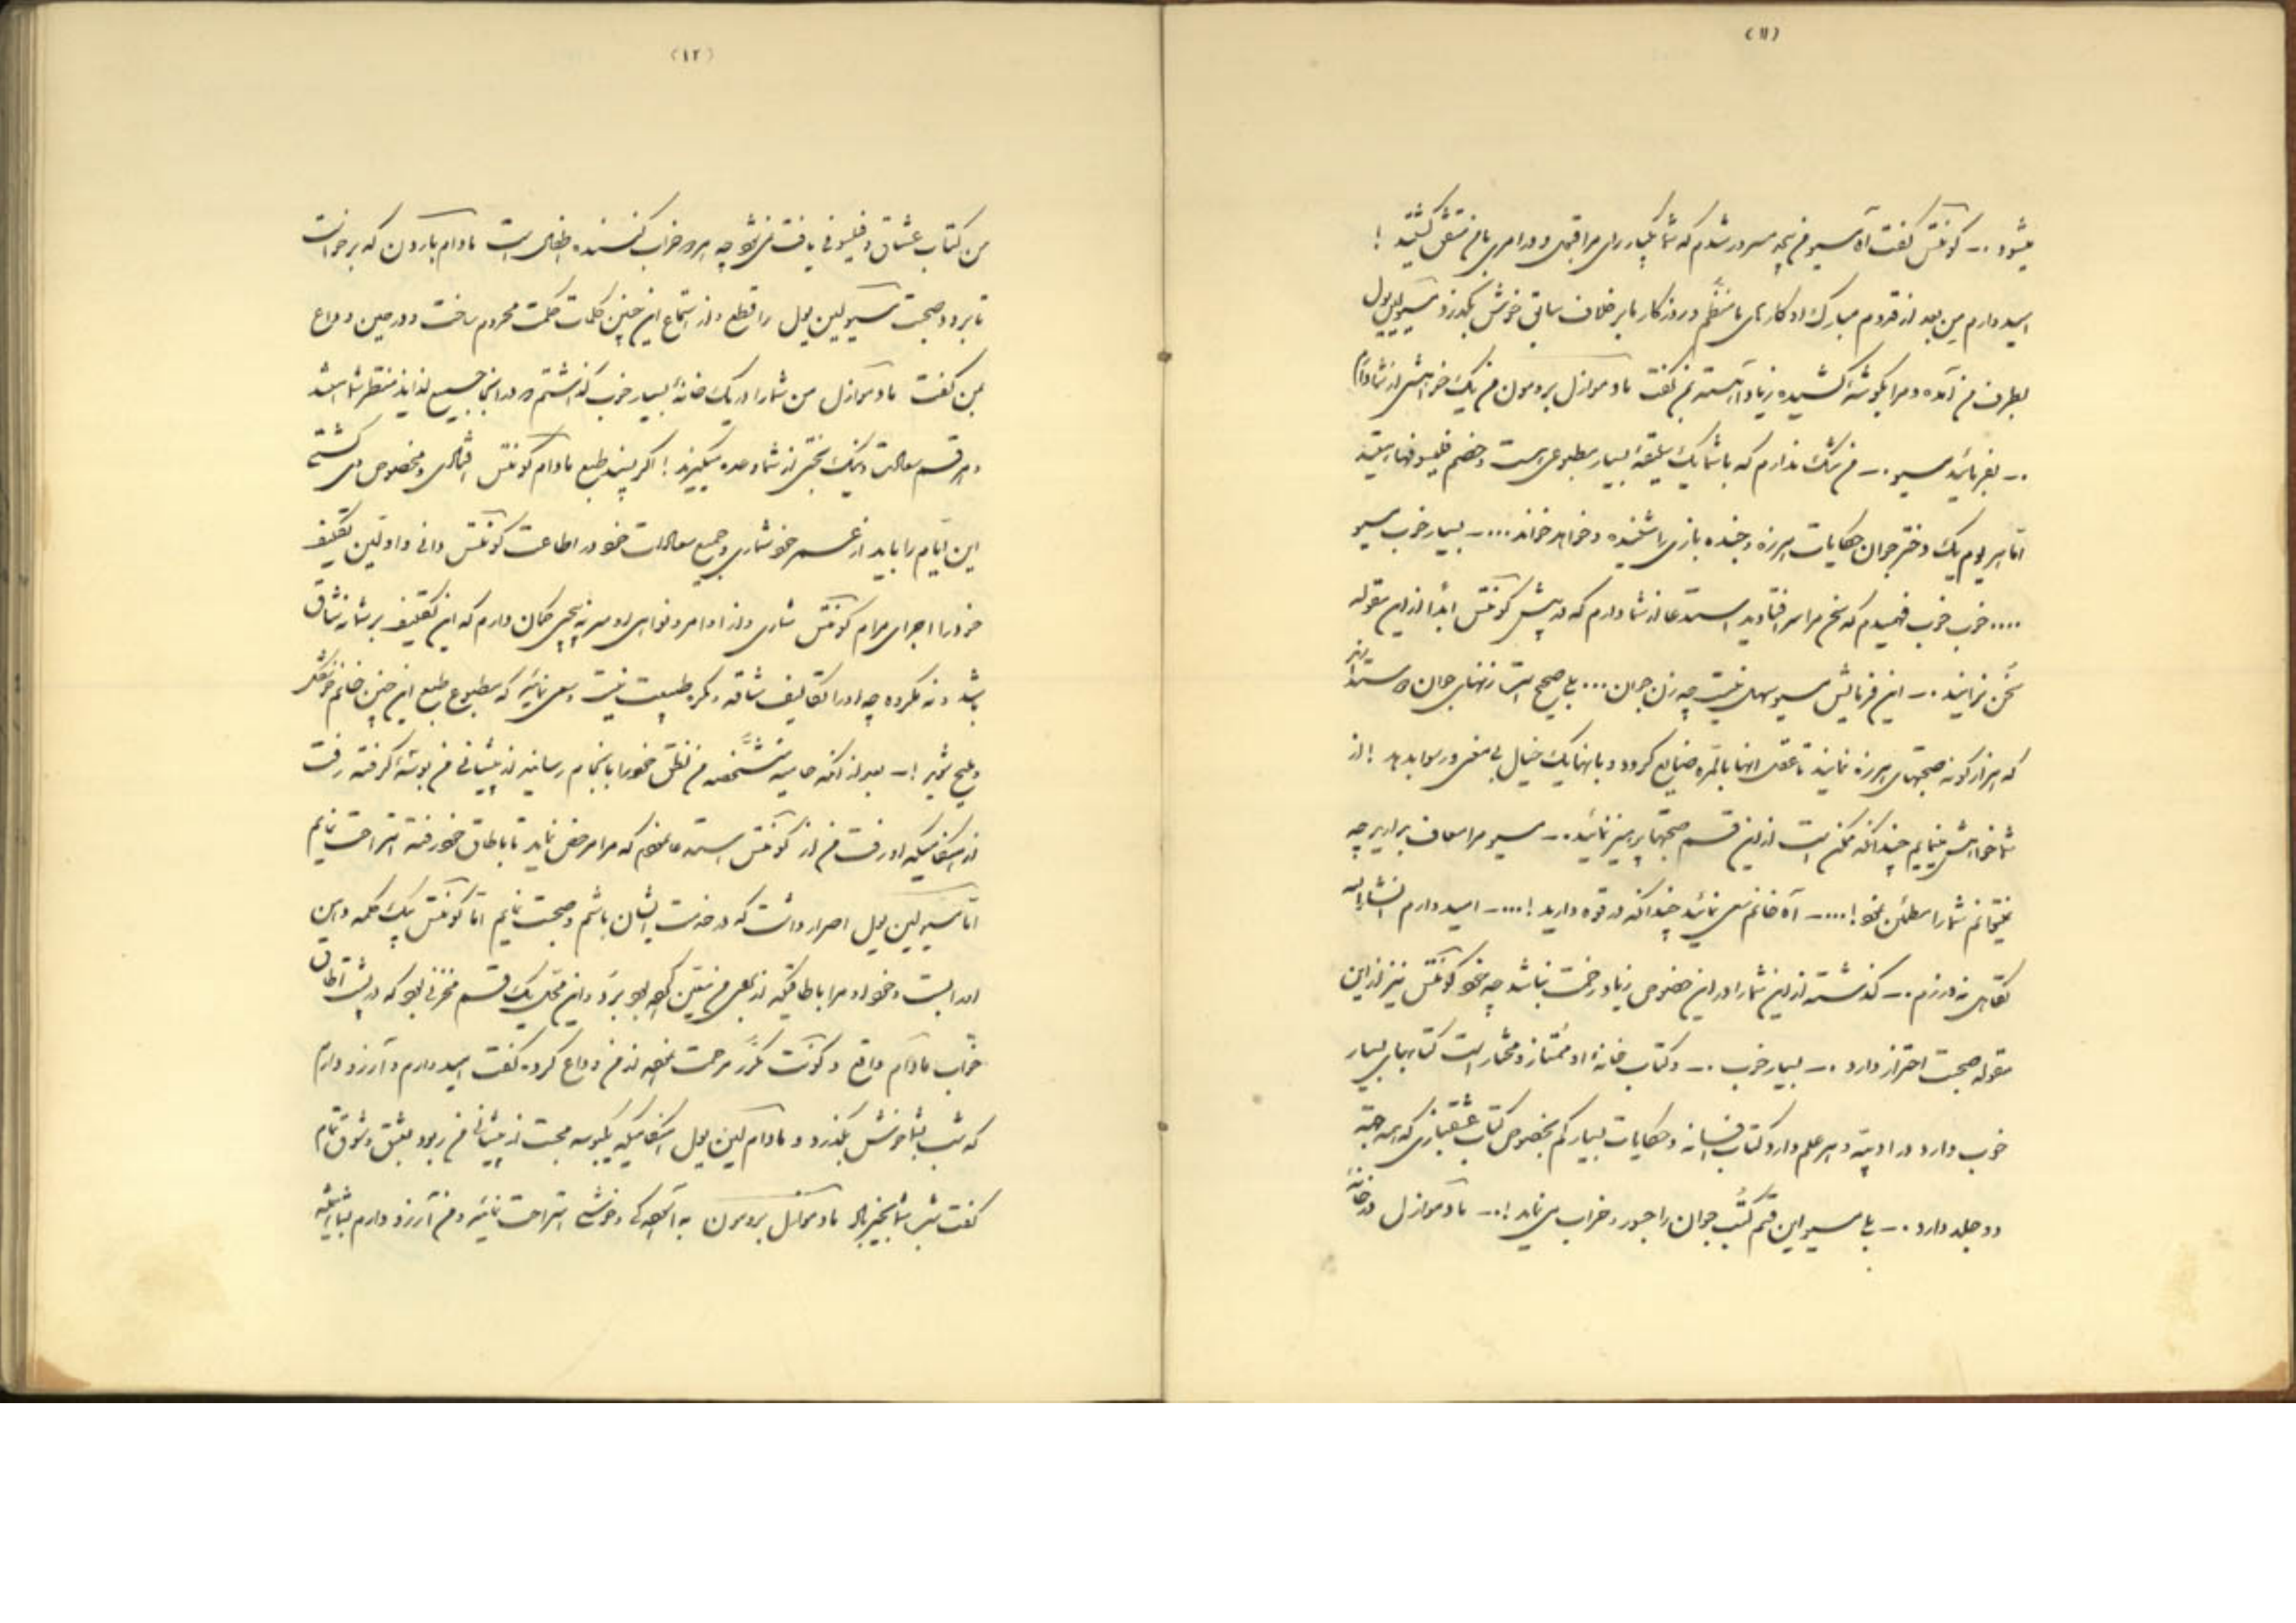 (۱۱)
میشود .- کونتس گفت آه مسیو من چه مسرور شدم که شما یکبار رای مرا و در امری با من متفق گشتید !
امیدوارم من بعد از قدوم مبارک او کارهای ما منظم و روزگار ما برخلاف سابق خوش بگذرد مسیو لین پول
بطرف من آمده و مرا بگوشهٔ کشیده زیاد آهسته بمن گفت مادموازل برومون من یک خواهشی از شما دارم
.- بفرمائید مسیو .- من شک ندارم که با شما یک سلیقهٔ بسیار مطبوعی است و خصم فیلسوفها هستید
اما هر یوم یک دختر جوان حکایات هرزه و خنده بازی را شنیده و خواهد خواند ....- بسیار خوب مسیو
.... خوب خوب فهمیدم که سخن مرا سر افتادید استدعا از شما دارم که در پیش کونتس ابداً از این مقوله
سخن نرانید .- این فرمایش مسیو سهل نیست چه زن جوان ... بلی صحیح است زنهای جوان دوست دارند
که از اینگونه صحبتهای هرزه نمایند تا عقل انها بالمره ضایع کردد و بانها یک خیال بی مغز و رسوا بدهد ! از
شما خواهش مینمایم چندانکه ممکن است از این قسم صحبتها پرهیز نمائید .- مسیو مرا معاف بدارید چه
نمیتوانم شما را مطمئن نمود !...- آه خانم سعی نمائید چندانکه در قوه دارید !...- امیدوارم انشاءالله
تکاهل نورزم .- گذشته از این شما را در این خصوص زیاد زحمت نباشد چه خود کونتس نیز از این
مقوله صحبت احتراز دارد .- بسیار خوب .- و کتاب خانهٔ او ممتاز و مختار است کتابهای بسیار
خوب دارد در ادبیه و هر علم دارد کتاب افسانه و حکایات بسیار کم بخصوص کتاب عشقبازی که همه جهة
دو جلد دارد .- بلی مسیو این قسم کتب جوان را جسور و خراب می نماید !.- مادموازل در خانهٔ
(۱۲)
من کتاب عشاق و فیلسوفی یافت نمی‌شود چه هر دو خراب کننده اطفال است مادام بارون که برخواست
تا برود صحبت مسیو لین پول را قطع و از استماع این چنین کلمات حکمت محروم ساخت و در حین وداع
بمن گفت مادموازل من شما را در یک خانهٔ بسیار خوب گذاشتم و در اینجا جمیع لذایذ منتظر شما میباشد
و هر قسم سعادت و نیک بختی از شما وعده میگیرند ! اگر پسند طبع مادام کونتس و مخصوص وی گشتی
این ایام را باید از عمر خود شماری و جمیع سعادات خود در اطاعت کونتس دانی و اولین تکلیف
خود را اجرای مرام کونتس شاری و از اوامر و نواهی او سر نپیچی گمان دارم که این تکلیف بر شما نه شاق
باشد و نه مکروه چه او را تکالیف شاقه و مکره طبیعت نیست و سعی نمائید که مطبوع طبع این چنین خانم خوشگل
و ملیح شوید !- بعد از انکه حامیه مشخصه من نطق خود را بانجام رسانید از پیشانی من بوسهٔ گرفته رفت
از هنگامیکه او رفت من از کونتس استدعا نمودم که مرا مرخص نماید تا باطاق خود رفته استراحت نمایم
اما مسیو لین پول اصرار داشت که در خدمت ایشان باشم و صحبت نمایم اما کونتس بیک کلمه دهن
او را بست و خود او مرا باطاقیکه از بهر من معین کرده بود برد و این محل یک قسم مخزنی بود که در پشت اطاق
خواب مادام واقع و کونت مکرر مرحمت نموده از من وداع کرده گفت امیدوارم و آرزو دارم
که شب بشما خوش بگذرد و مادام لین پول هنگامیکه یکبوسه محبت از پیشانی من ربود بعشق و شوق تمام
گفت شب شما بخیر باد مادموازل برومون به آسودگی و خوشی استراحت نمائید و من آرزو دارم